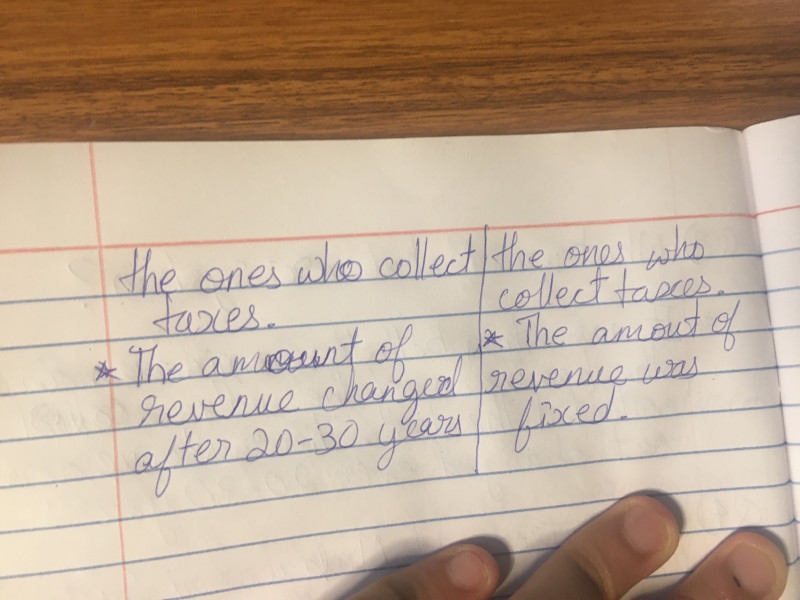 the ones who collect
taxes.
* The amount of
revenue changed
after 20-30 years
the ones who
collect taxes.
* The amout of
revenue was
fixed.